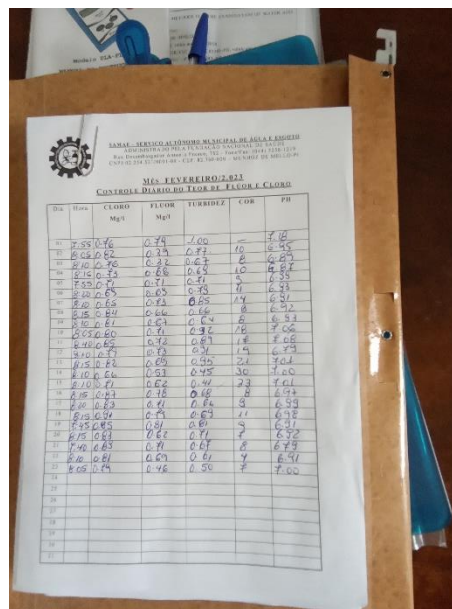 SAMAE - SERVIÇO AUTÔNOMO MUNICIPAL DE ÁGUA E ESGOTO
ADMINISTRADO PELA FUNDAÇÃO NACIONAL DE SAÚDE
MÊS FEVEREIRO/2.023
CONTROLE DIÁRIO DO TEOR DE FLÚOR E CLORO
Dia Hora CLORO Mg/l FLUOR Mg/l TURBIDEZ COR PH
01 7:55 0.76 0.74 1.00 - 7.18
02 8:05 0.82 0.39 0.77 10 6.95
03 8:10 0.78 0.32 0.67 8 6.89
04 8:15 0.73 0.68 0.69 10 6.87
05 7:55 0.71 0.71 0.71 9
06 0.65 0.79 11 6.93
07 8:10 0.65 0.73 0.85 14 6.91
08 8:15 0.84 0.66 0.66 8 6.92
09 8:10 0.81 0.67 0.64 8 6.93
10 8:05 0.80 0.71 0.92 18 7.06
11 8:40 0.65 0.72 0.89 17 7.08
12 8:10 0.77 0.73 0.91 19 6.79
13 8:15 0.82 0.65 0.95 21 7.01
14 8:10 0.66 0.53 0.45 30 7.00
15 8:10 0.71 0.62 0.41 23 7.01
16 8:15 0.87 0.78 0.68 8 6.97
17 8:10 0.83 0.71 0.66 9 6.99
18 8:15 0.91 0.79 0.69 11 6.98
19 7:45 0.85 0.81 0.81 9 6.91
20 8:15 0.81 0.62 0.71 7 6.92
21 7:40 0.85 0.71 0.67 8 6.79
22 8:10 0.81 0.69 0.61 6.91
23 8:05 0.79 0.46 0.50 7 7.00
24
25
26
27
28
29
30
31